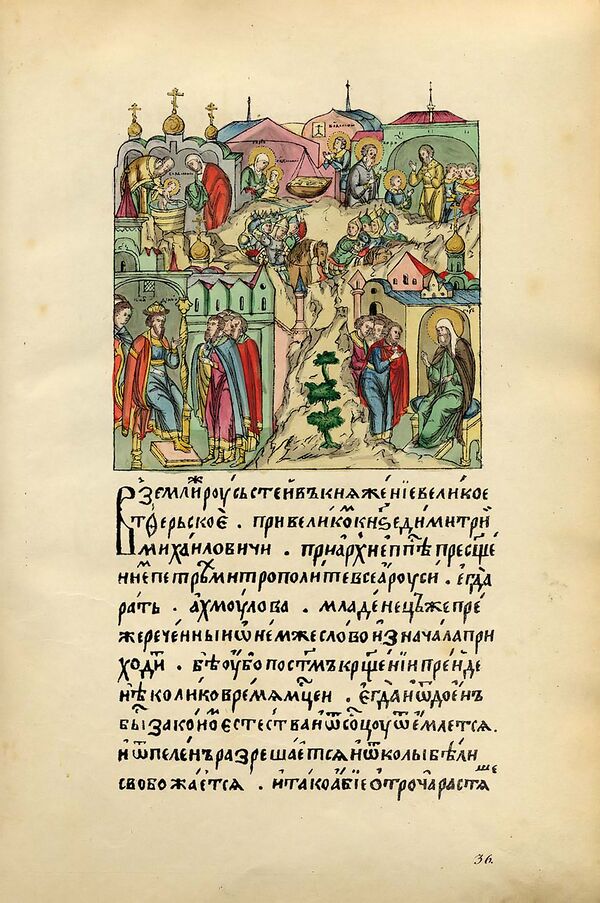 В землиⷤ роусьстей въ княженїе великое
тферьское . при великоⷨ кнѕе димитрїи
михаиловичи . при архиеппⷭ҇ѣ пресщ҃е
ннеⷨ петрѣ митрополите всеа роуси . егда
рать . ахмоулова . младенецъ же пре
жереченныи ѡнемже слово изначала при
ходиⷮ . бѣ оубо по стⷨ҇ъ крщ҃енїи преиде
нѣколико время мцⷭ҇еи . егда и ѿдоенъ
бы законоⷨ естества и ѿ сосцоу ѿемлется .
и ѿ пеленъ разрешается и ѿ колыбѣли
свобожается . и тако абїе отроча растяⷲ҇е
36.